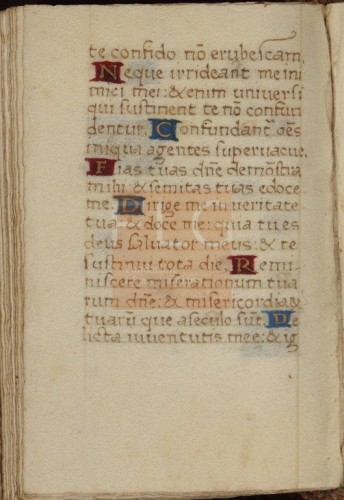 te confido nō erubescam.
Neque irrideant me ini
mici mei: & enim universi
qui sustinent te nō confun
dentur. Confundantˀ oēs
iniqua agentes supervacue.
Fias tuas dn̄e demōstra
mihi & semitas tuas edoce
me. Dirige me in veritate
tua & doce me: quia tu es
deus salvator meus: & te
sustinui tota die. Remi
niscere miserationum tua
rum dn̄e: & misericordia&
tuarū que a seculo sūt. De
licta iuventutis mee: & ig